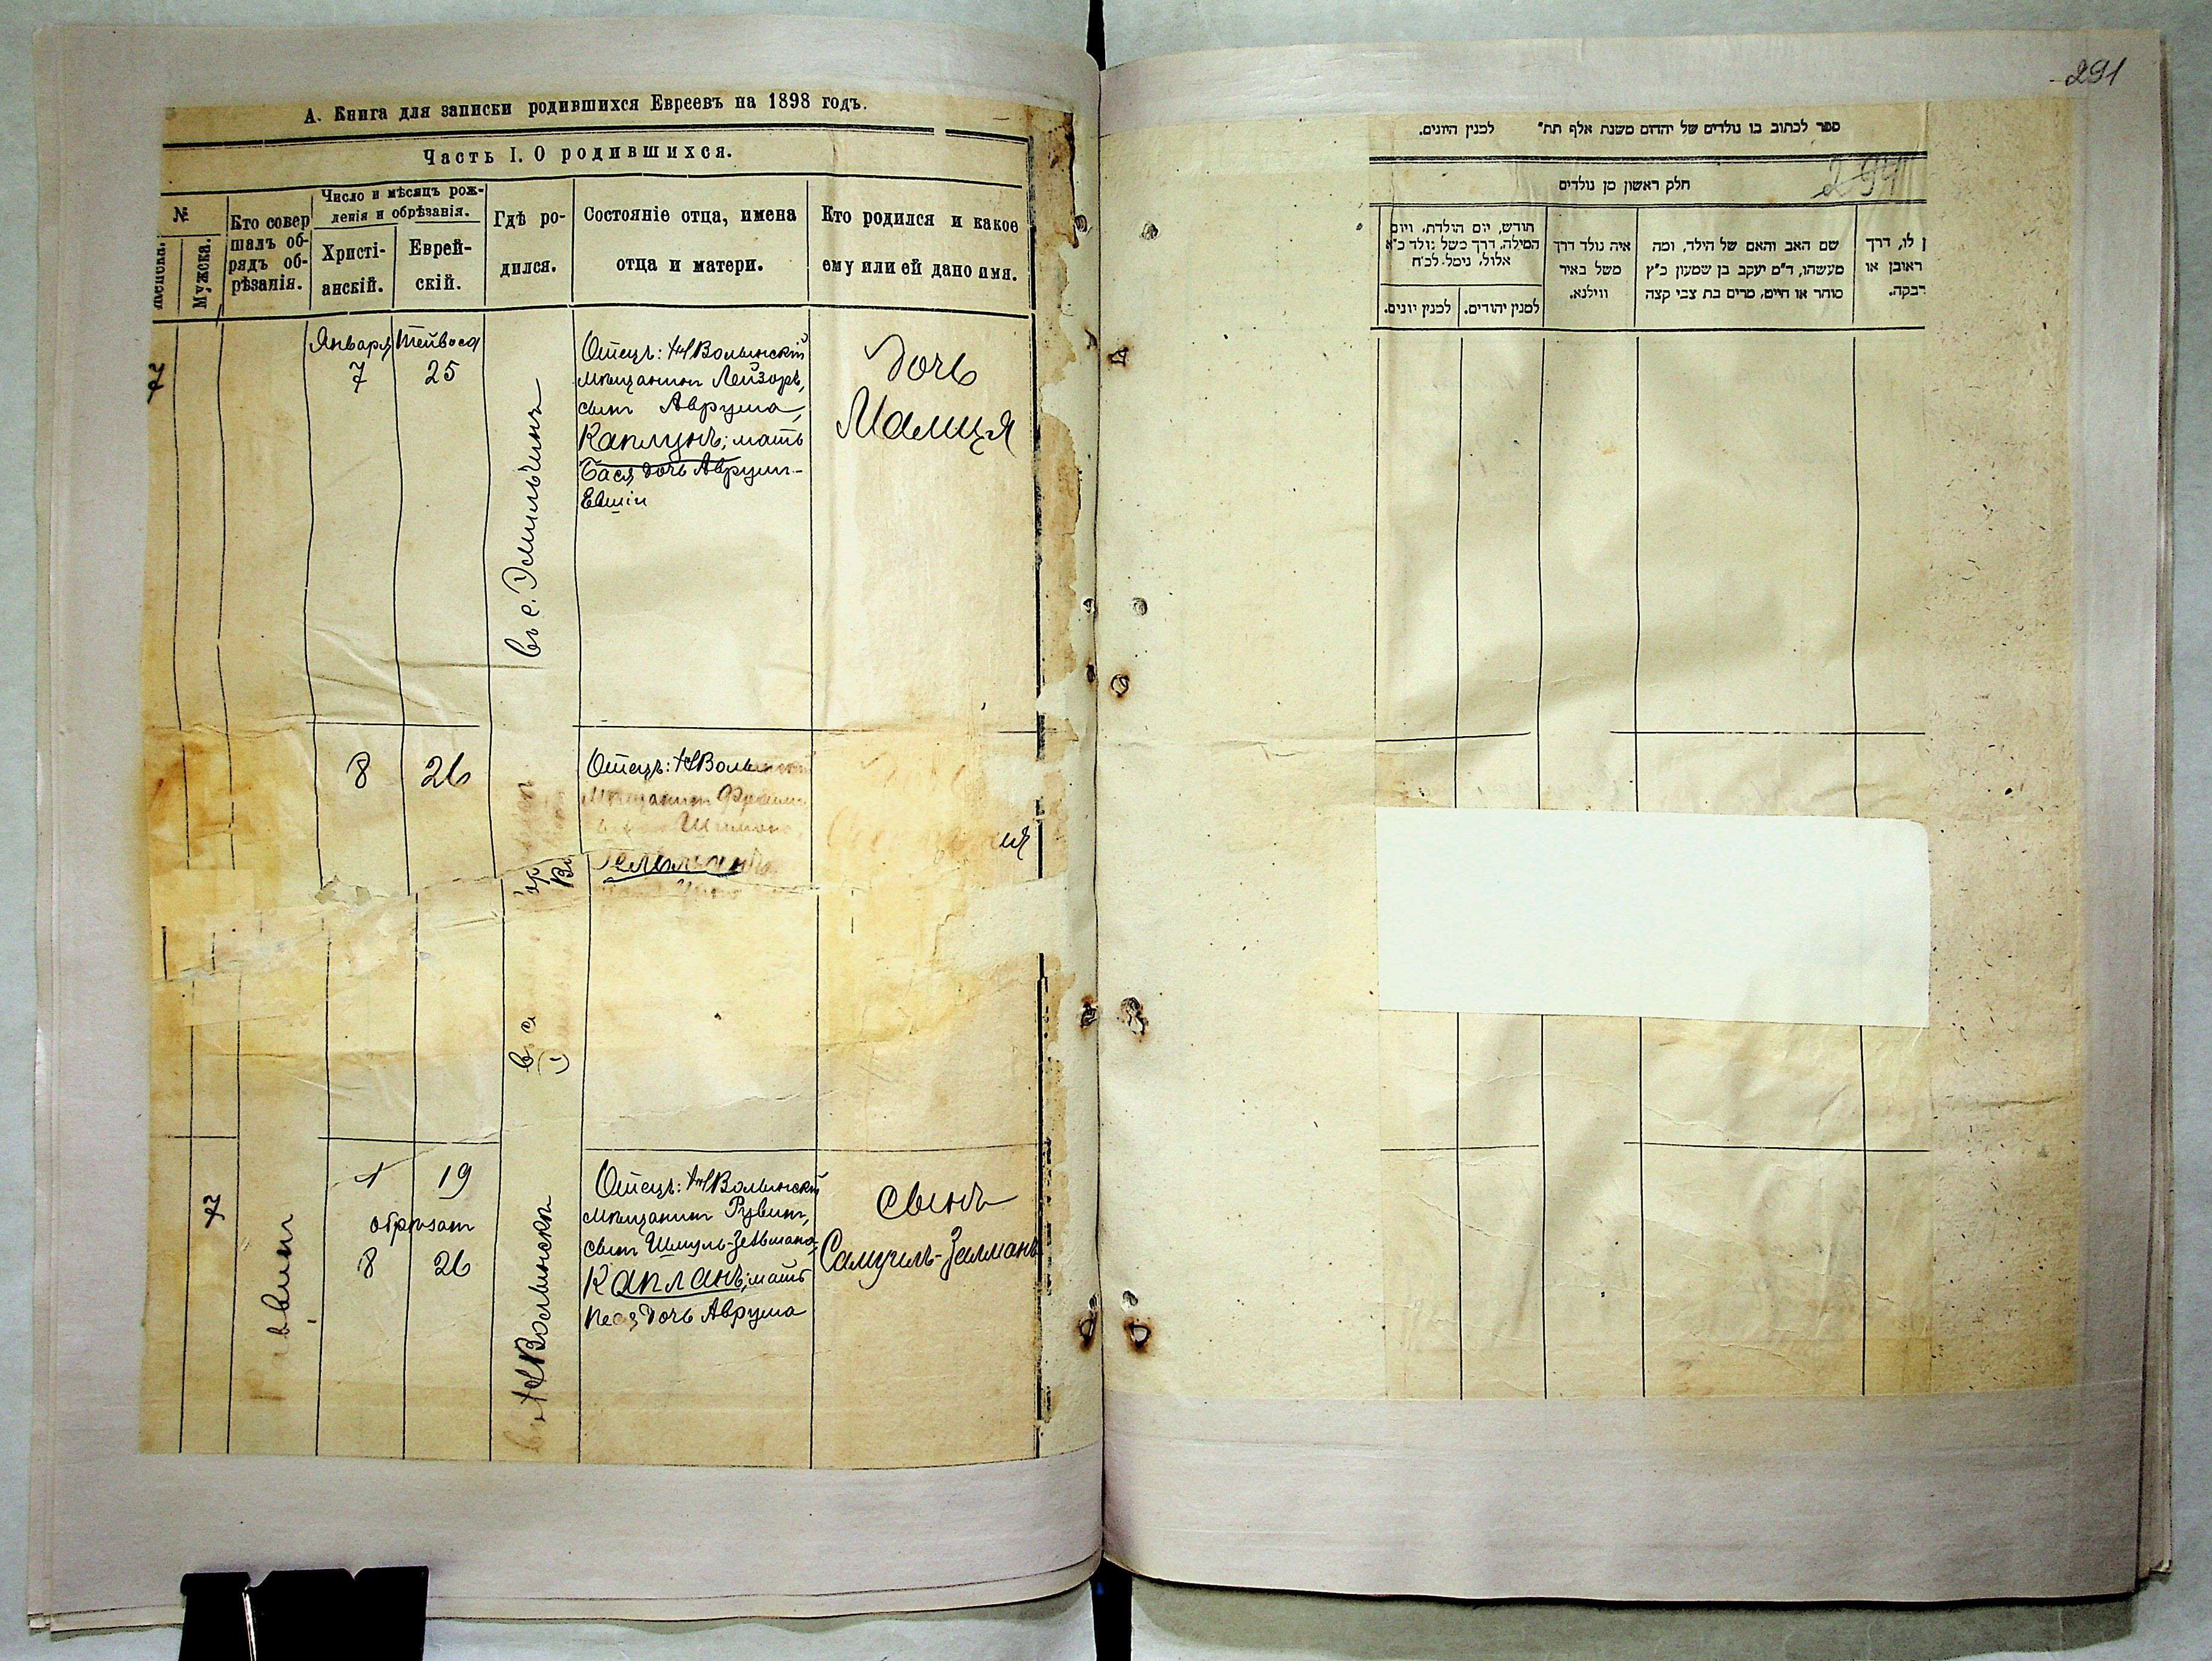 291
А. Книга для записки родившихся Евреевъ на 1898 годъ.
Часть I. О родившихся.
№
Женска.
Мужска.
Кто совер
шалъ об-
рядъ об-
рѣзанія.
Число и мѣсяцъ рож-
денія и обрѣзанія.
Христі-
анскій.
Еврей-
скій.
Гдѣ ро-
дился.
Состояніе отца, имена
отца и матери.
Кто родился и какое
ему или ей дано имя.
Января
7
Тейвеса
25
въ с. Эмильчинъ
Отецъ: НВолынскій
мѣщанинъ Лейзоръ,
сынъ Аврума,
Каплунъ; мать
Бася, дочь Аврум-
Евшіи
дочь
Малия
8
26
Отецъ: НВолынскій
Мѣщанинъ
въ с
ия
7
1
19
обрѣзанъ
8
26
въ НВолынскѣ
Отецъ: НВолынскій
мѣщанинъ Рувинъ,
сынъ Шмуль-Зельмана,
Капланъ; мать
Песя, дочь Аврума
сынъ
Самуилъ-Залманъ
ספר לכתוב בו נולדים של יהדום משנת אלף תת״ למנין היונים.
294
חלק ראשון מן נולדים
חודש, יום הולדת, ויום
המילה, דרך משל נולד כ״א
אלול, נימל לכ״ח
למנין יונים.
למנין יהודים.
איה נולד דרך
משל באיר
ווילנא.
שם האב והאם של הילד, ומה
מעשהו, ד״מ יעקב בן שמעון כ״ץ
סוחר או חייט, מרים בת צבי קצה
לו, דרך
ראובן או
רבקה.